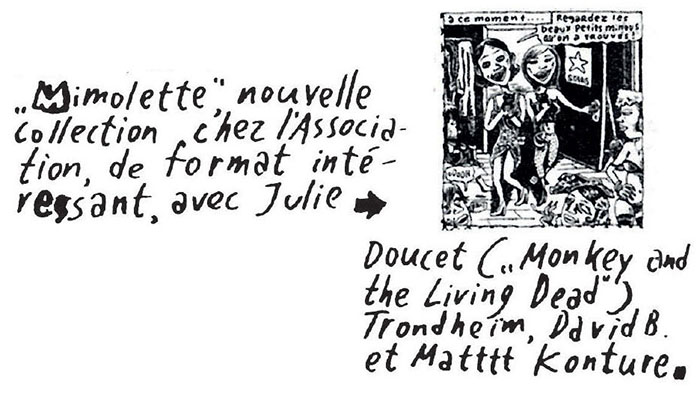 „Mimolette", nouvelle
collection chez l'Associa-
tion, de format inté-
ressant, avec Julie
à ce moment....
Regardez les
beaux petits minous
qu'on a trouvés!
Doucet („Monkey and
the Living Dead")
Trondheim, David B.
et Matttt Konture.